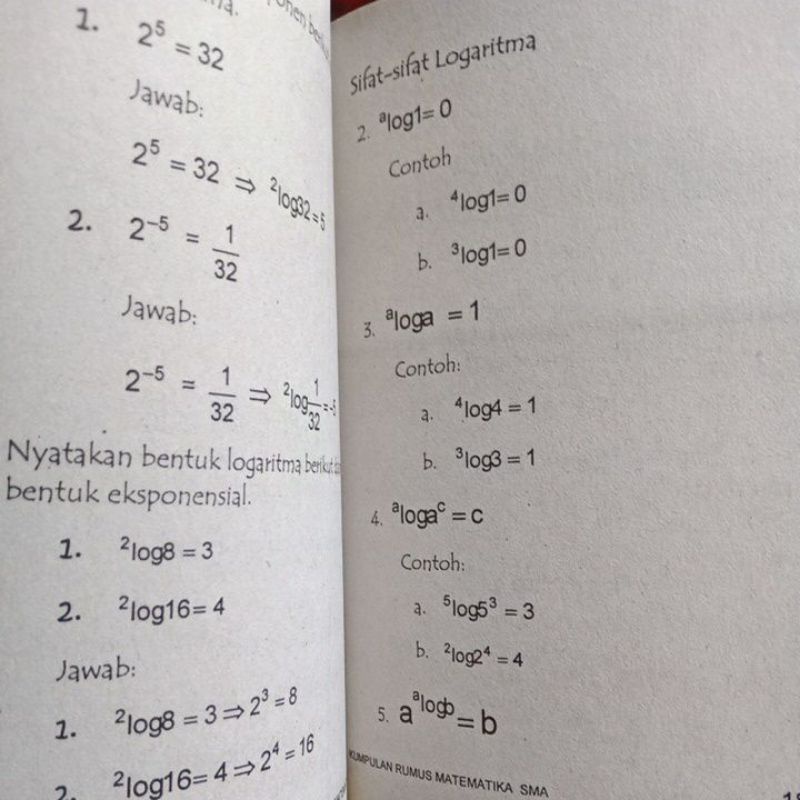 1. 2⁵ = 32
Jawab:
2⁵ = 32 ⇒ ²log32 = 5
2. 2⁻⁵ = 1/32
Jawab:
2⁻⁵ = 1/32 ⇒ ²log 1/32 = -5
Nyatakan bentuk logaritma berikut
bentuk eksponensial.
1. ²log8 = 3
2. ²log16= 4
Jawab:
1. ²log8 = 3 ⇒ 2³ = 8
2. ²log16= 4 ⇒ 2⁴ = 16
Sifat-sifat Logaritma
2. ᵃlog1= 0
Contoh
a. ⁴log1= 0
b. ³log1= 0
3. ᵃloga = 1
Contoh:
a. ⁴log4 = 1
b. ³log3 = 1
4. ᵃlogaᶜ = c
Contoh:
a. ⁵log5³ = 3
b. ²log2⁴ = 4
5. a^(ᵃlogb) = b
KUMPULAN RUMUS MATEMATIKA SMA